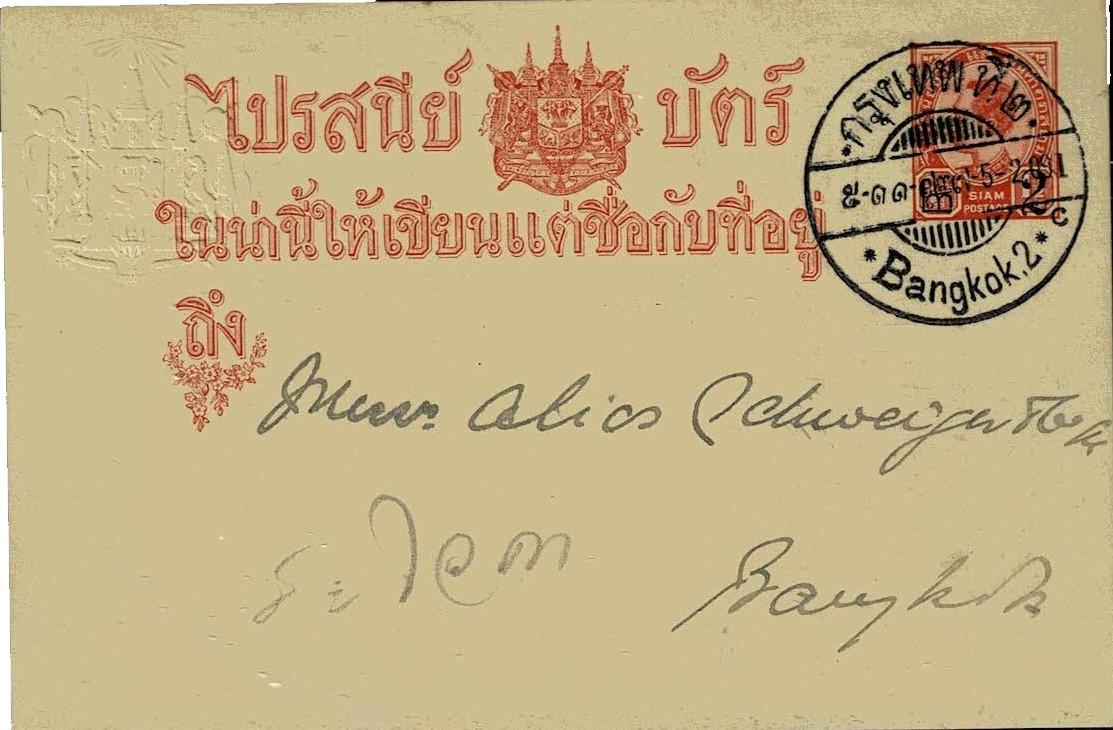 ไปรสนีย์ บัตร์
ในน่านี้ให้เขียนแต่ชื่อกับที่อยู่
ถึง
กรุงเทพที่๒
Bangkok.2
2 c
SIAM
POSTAGE
Alios Schweiger
Bangkok